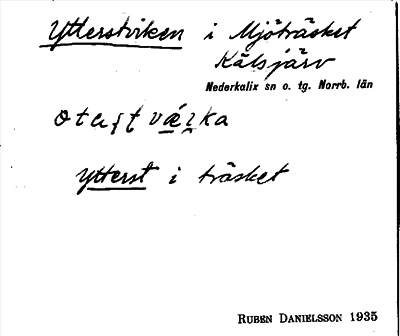 Ytterstviken i Mjöträsket
Kälsjärv
Nederkalix sn o. tg. Norrb. län
ytterst i träsket
RUBEN DANIELSSON 1935